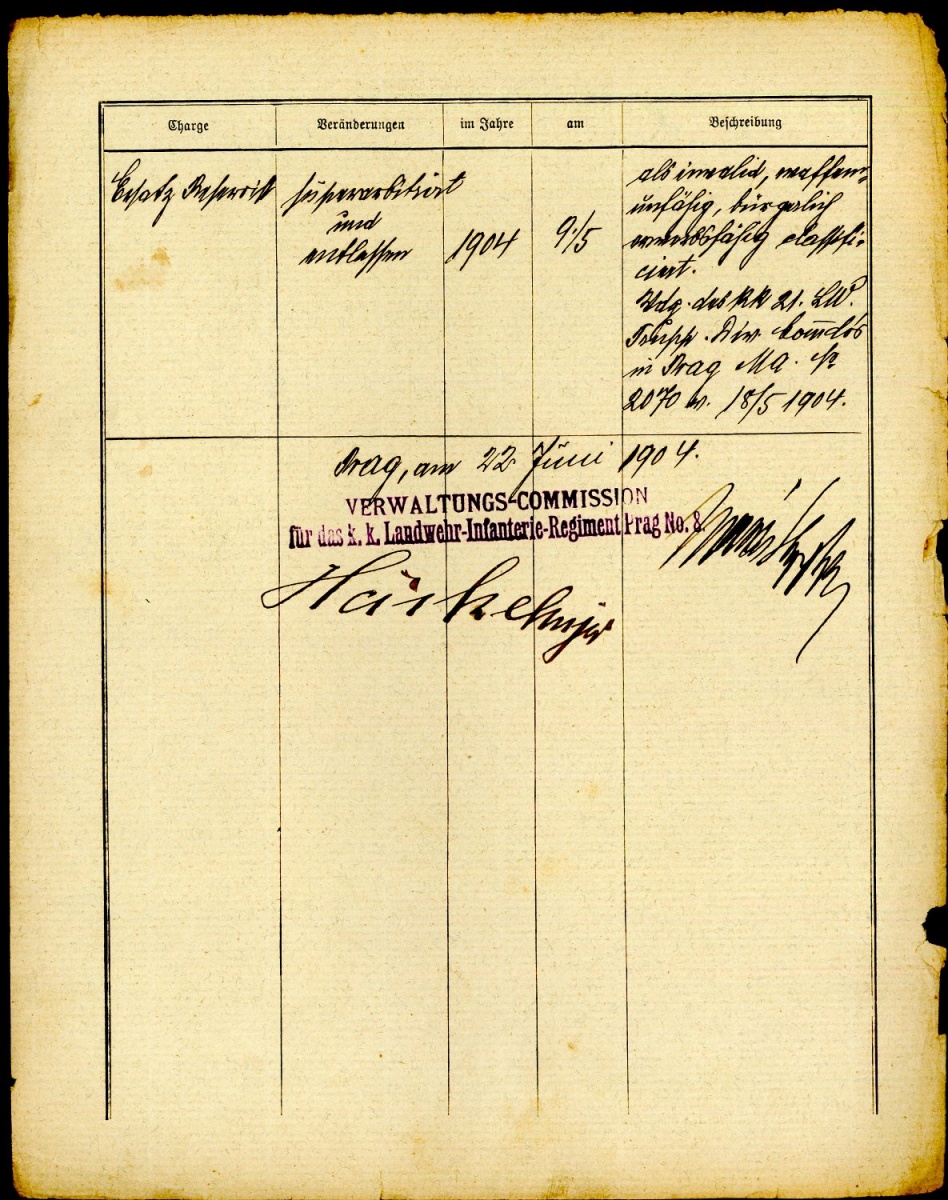 Charge Veränderungen im Jahre am Beschreibung
Ersatz Reservist
superarbitrirt
und
entlassen
1904
9/5
als invalid, waffen-
unfähig, bürgerlich
erwerbsfähig classifi-
ciert.
Vdg. des kk 21. LW.
Trupp. Div. Comdos
in Prag MA. Nr
2070 v. 18/5 1904.
Prag, am 22 Juni 1904.
VERWALTUNGS-COMMISSION
für das k. k. Landwehr-Infanterie-Regiment Prag No. 8.